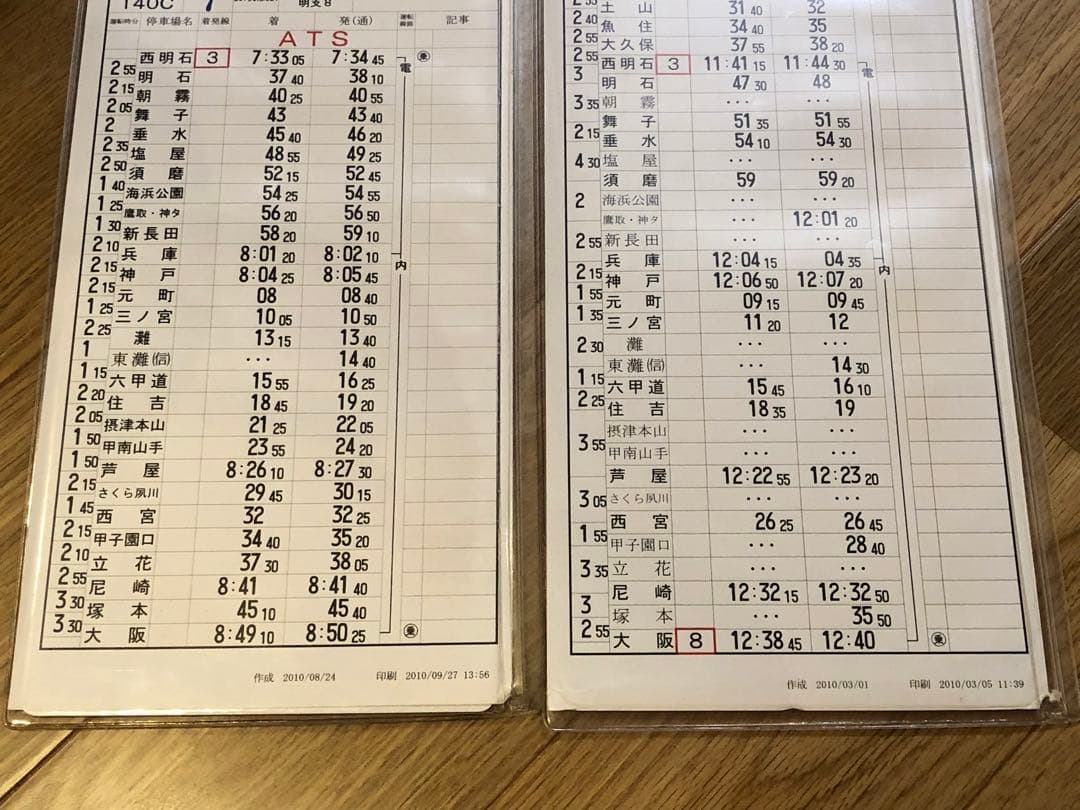 140C 7 明支8
運転時分 停車場名 着発線 着 発(通) 運転線路 記事
ATS
西明石 3 7:33 05 7:34 45 電 乗
2 55 明石 37 40 38 10
2 15 朝霧 40 25 40 55
2 05 舞子 43 43 40
2 垂水 45 40 46 20
2 35 塩屋 48 55 49 25
2 50 須磨 52 15 52 45
1 40 海浜公園 54 25 54 55
1 25 鷹取・神タ 56 20 56 50
1 30 新長田 58 20 59 10
2 10 兵庫 8:01 20 8:02 10 内
2 15 神戸 8:04 25 8:05 45
2 15 元町 08 08 40
1 25 三ノ宮 10 05 10 50
2 25 灘 13 15 13 40
1 東灘(信) ・・・ 14 40
1 15 六甲道 15 55 16 25
2 20 住吉 18 45 19 20
2 05 摂津本山 21 25 22 05
1 50 甲南山手 23 55 24 20
1 50 芦屋 8:26 10 8:27 30
2 15 さくら夙川 29 45 30 15
1 45 西宮 32 32 25
2 15 甲子園口 34 40 35 20
2 10 立花 37 30 38 05
2 55 尼崎 8:41 8:41 40
3 30 塚本 45 10 45 40
3 30 大阪 8:49 10 8:50 25 乗
作成 2010/08/24 印刷 2010/09/27 13:56
土山 31 40 32
2 55 魚住 34 40 35
2 55 大久保 37 55 38 20
2 55 西明石 3 11:41 15 11:44 30 電
3 明石 47 30 48
3 35 朝霧 ・・・ ・・・
舞子 51 35 51 55
2 15 垂水 54 10 54 30
4 30 塩屋 ・・・ ・・・
須磨 59 59 20
2 海浜公園 ・・・ ・・・
鷹取・神タ ・・・ 12:01 20
2 55 新長田 ・・・ ・・・
兵庫 12:04 15 04 35 内
2 15 神戸 12:06 50 12:07 20
1 55 元町 09 15 09 45
1 35 三ノ宮 11 20 12
2 30 灘 ・・・ ・・・
東灘(信) ・・・ 14 30
1 15 六甲道 15 45 16 10
2 25 住吉 18 35 19
摂津本山 ・・・ ・・・
3 55 甲南山手 ・・・ ・・・
芦屋 12:22 55 12:23 20
3 05 さくら夙川 ・・・ ・・・
西宮 26 25 26 45
1 55 甲子園口 ・・・ 28 40
3 35 立花 ・・・ ・・・
尼崎 12:32 15 12:32 50
3 塚本 ・・・ 35 50
2 55 大阪 8 12:38 45 12:40 乗
作成 2010/03/01 印刷 2010/03/05 11:39